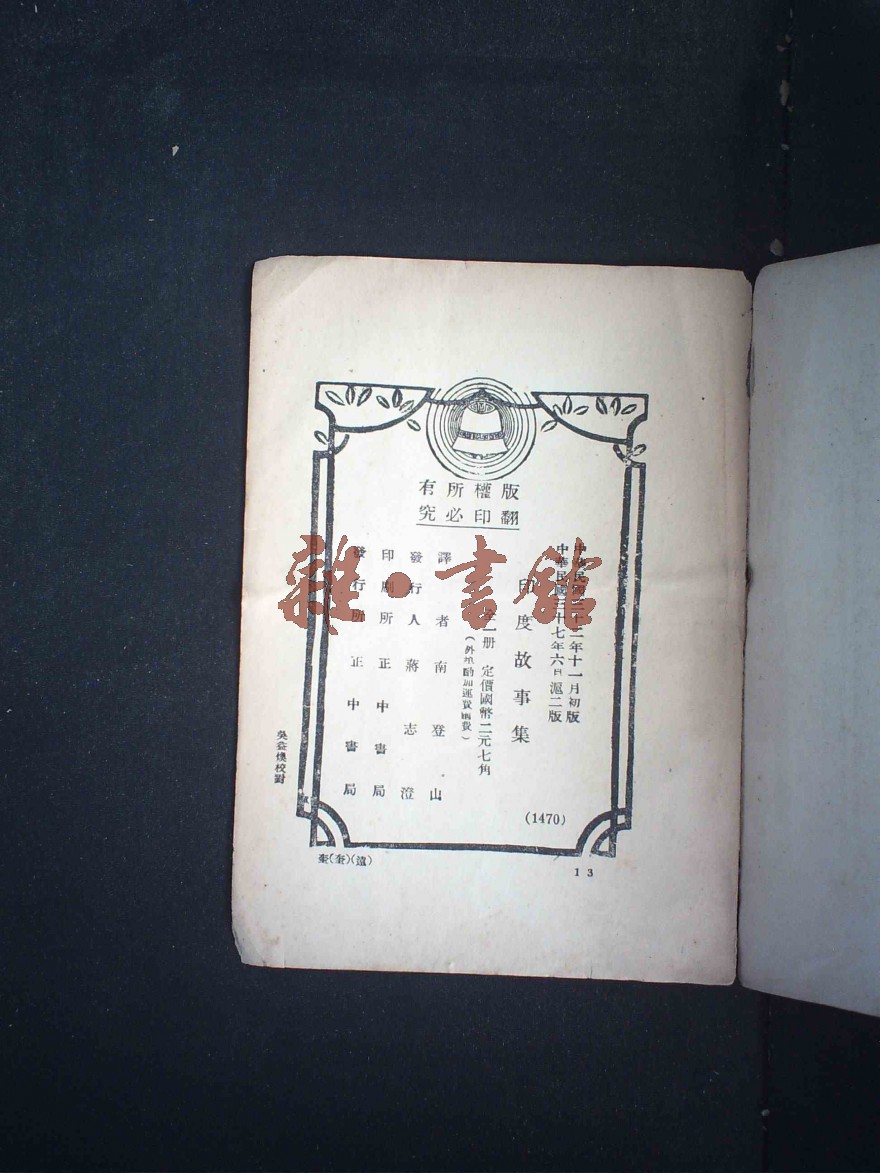 版權所有
翻印必究
中華民國三十二年十一月初版
中華民國三十七年六月滬二版
印度故事集
全一册 定價國幣二元七角
（外埠酌加運費匯費）
譯者 南登山
發行人 蔣志澄
印刷所 正中書局
發行所 正中書局
(1470)
校對
(遠)
13
雜·書館